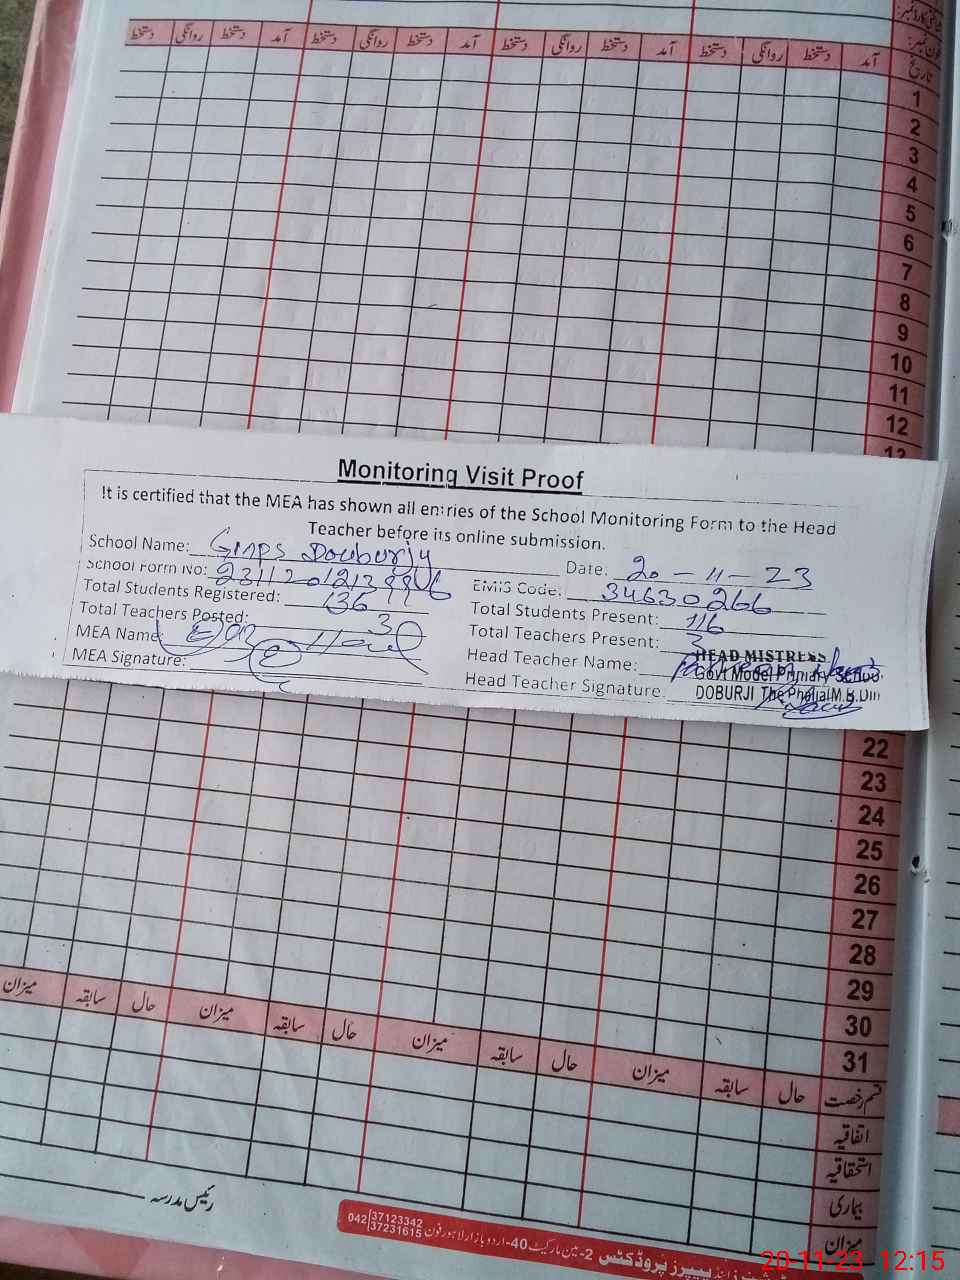 آمد دستخط روانگی دستخط آمد دستخط روانگی دستخط آمد دستخط روانگی دستخط آمد دستخط روانگی دستخط
تاریخ
1
2
3
4
5
6
7
8
9
10
11
12
13
Monitoring Visit Proof
It is certified that the MEA has shown all entries of the School Monitoring Form to the Head
Teacher before its online submission.
School Name: Gmps Douburjy Date: 20-11-23
School Form No: EMIS Code: 34630266
Total Students Registered: 136 Total Students Present: 116
Total Teachers Posted: 3 Total Teachers Present: 3
MEA Name: Head Teacher Name:
MEA Signature: Head Teacher Signature:
HEAD MISTRESS
Govt Model Primary School
DOBURJI The PhaliaM.B.Din
22
23
24
25
26
27
28
29
30
31
قسم رخصت حال سابقہ میزان حال سابقہ میزان حال سابقہ میزان حال سابقہ میزان
اتفاقیہ
استحقاقیہ
بیماری
میزان
رئیس مدرسہ
پیپرز پروڈکٹس 2-مین مارکیٹ 40-اردو بازار لاہور فون 042 37123342
37231615
20 11 23 12:15